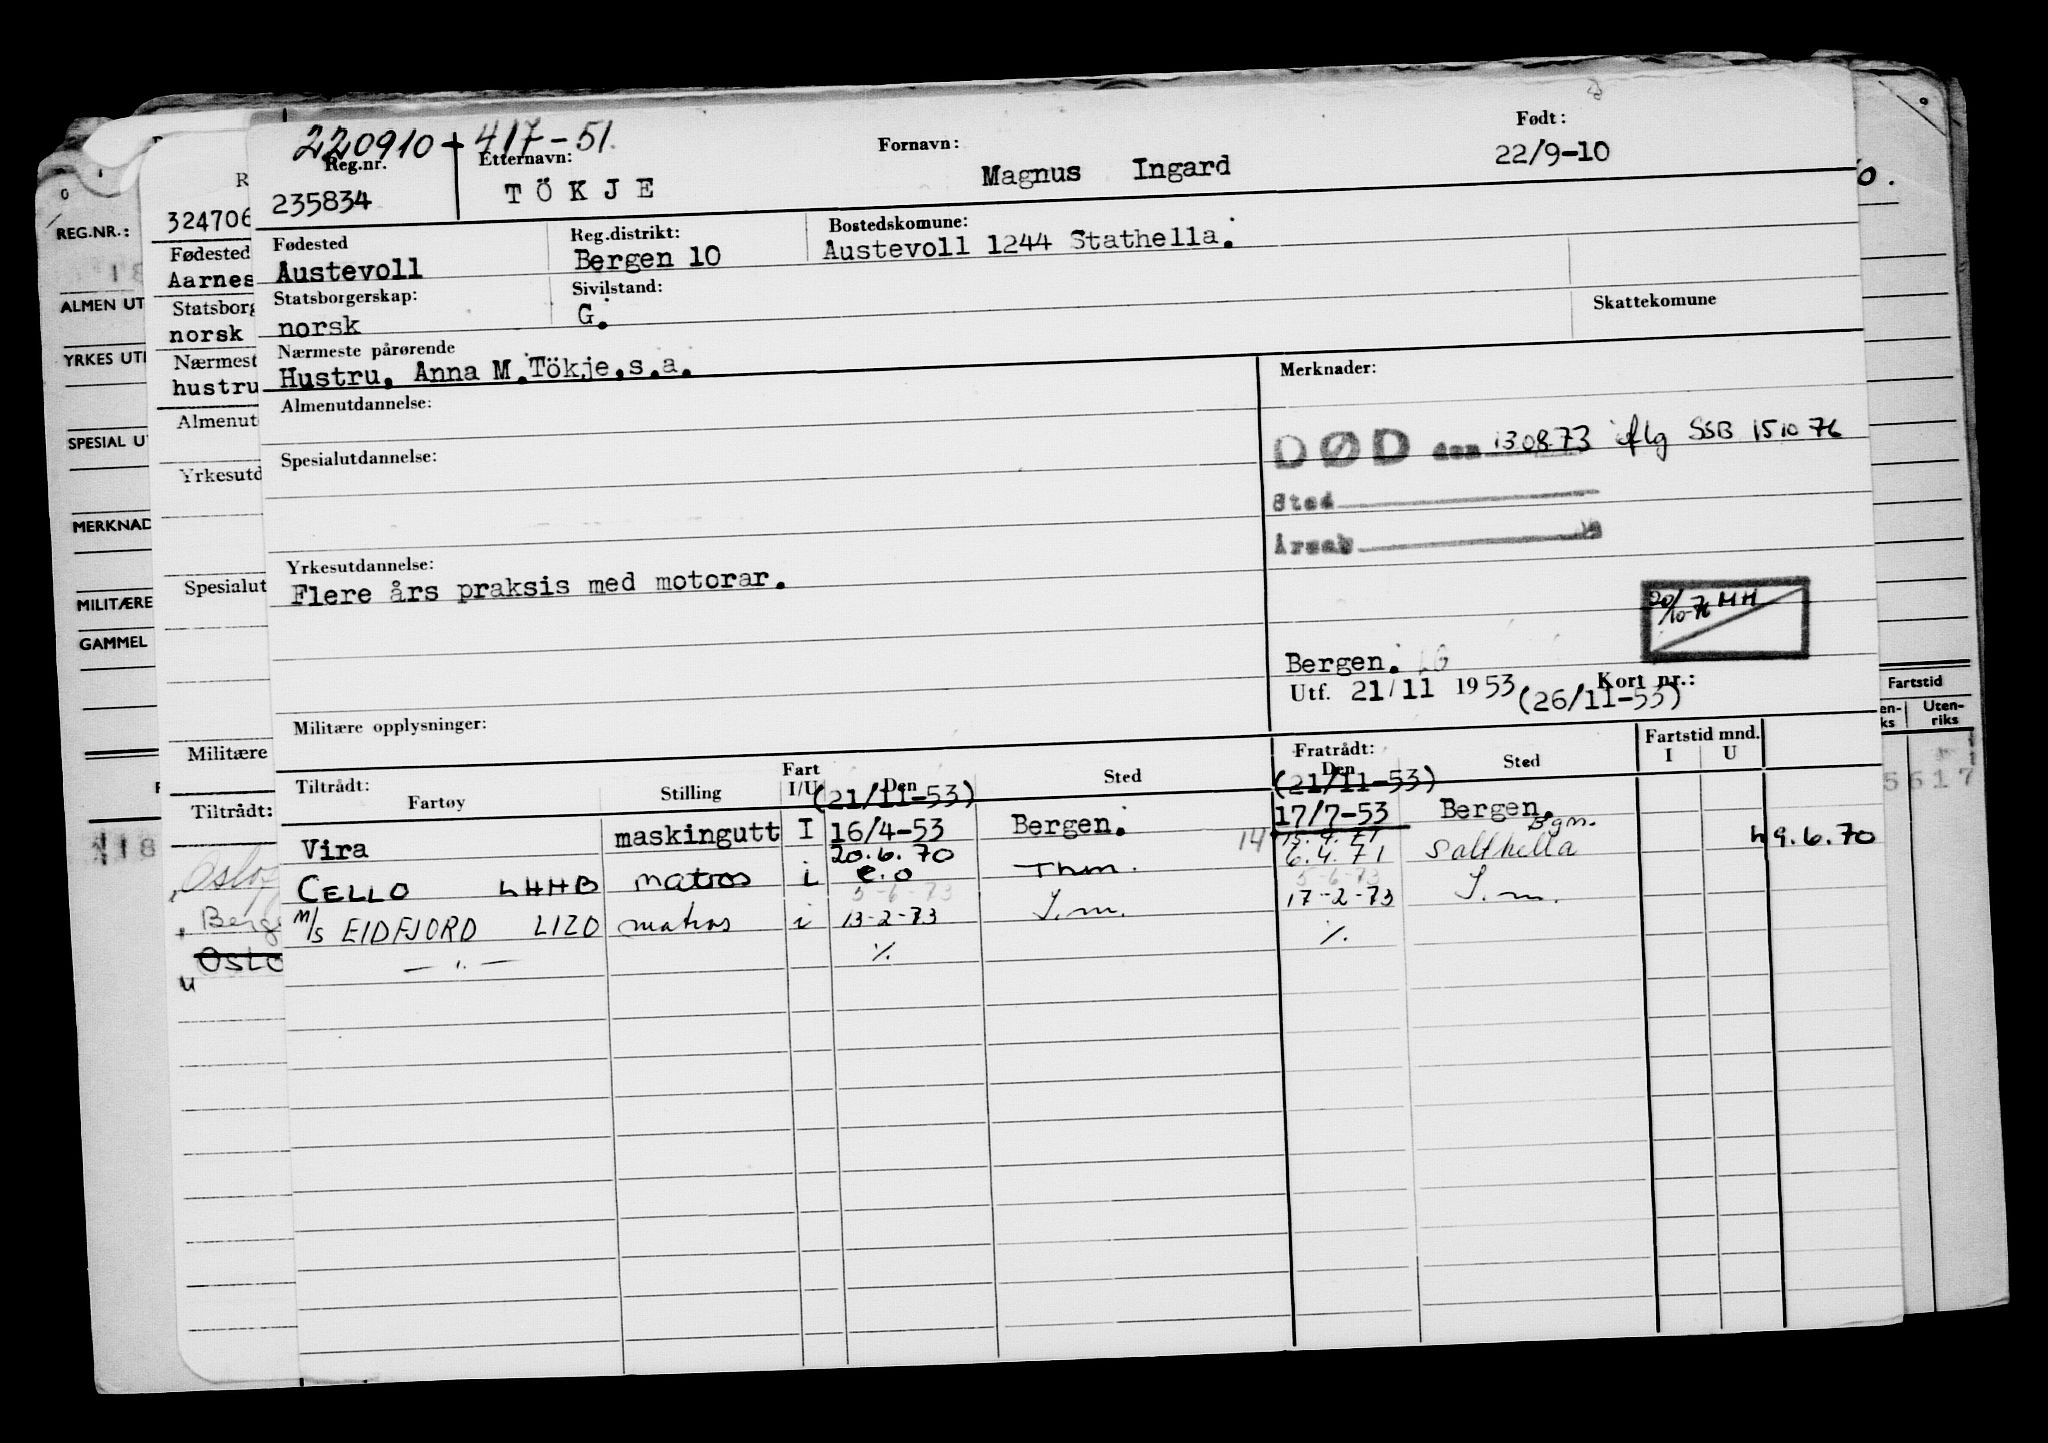 220910 + 417-51.
Reg.nr. Etternavn: Fornavn: Født:
235834 TÖKJE Magnus Ingard 22/9-10
Fødested Reg.distrikt: Bostedskomune:
Austevoll Bergen 10 Austevoll 1244 Stathella.
Statsborgerskap: Sivilstand: Skattekomune
norsk G.
Nærmeste pårørende
Hustru, Anna M.Tökje,s.a.
Merknader:
Almenutdannelse:
DØD den 130873 iflg SSB 151076
Spesialutdannelse:
Sted
Årsak
Yrkesutdannelse:
Flere års praksis med motorar.
20/10-76 HH
Bergen.
Utf. 21/11 1953 (26/11-53) Kort nr.:
Militære opplysninger:
Tiltrådt: Fratrådt: Fartstid mnd.
Fartøy Stilling Fart I/U Den Sted Den Sted I U
(21/11-53) (21/11-53)
Vira maskingutt I 16/4-53 Bergen. 17/7-53 Bergen.
20.6.70 14 15.4.71 Bgm.
CELLO LHHB matros i e.o Thm. 6.4.71 Salthella 49.6.70
5-6-73 5-6-73
M/S EIDFJORD LIZO matros i 13-2-73 I.m. 17-2-73 I.m.
— " — ./. ./.
REG.NR.:
ALMEN UT
YRKES UT
SPESIAL U
MERKNAD
MILITÆRE
GAMMEL
118
R
324706
Fødested
Aarnes
Statsborg
norsk
Nærmest
hustru
Almenut
Yrkesutd
Spesialut
Militære
Tiltrådt:
Oslo
Berg
Oslo
u
0.
Fartstid
en-ks Uten-riks
5617